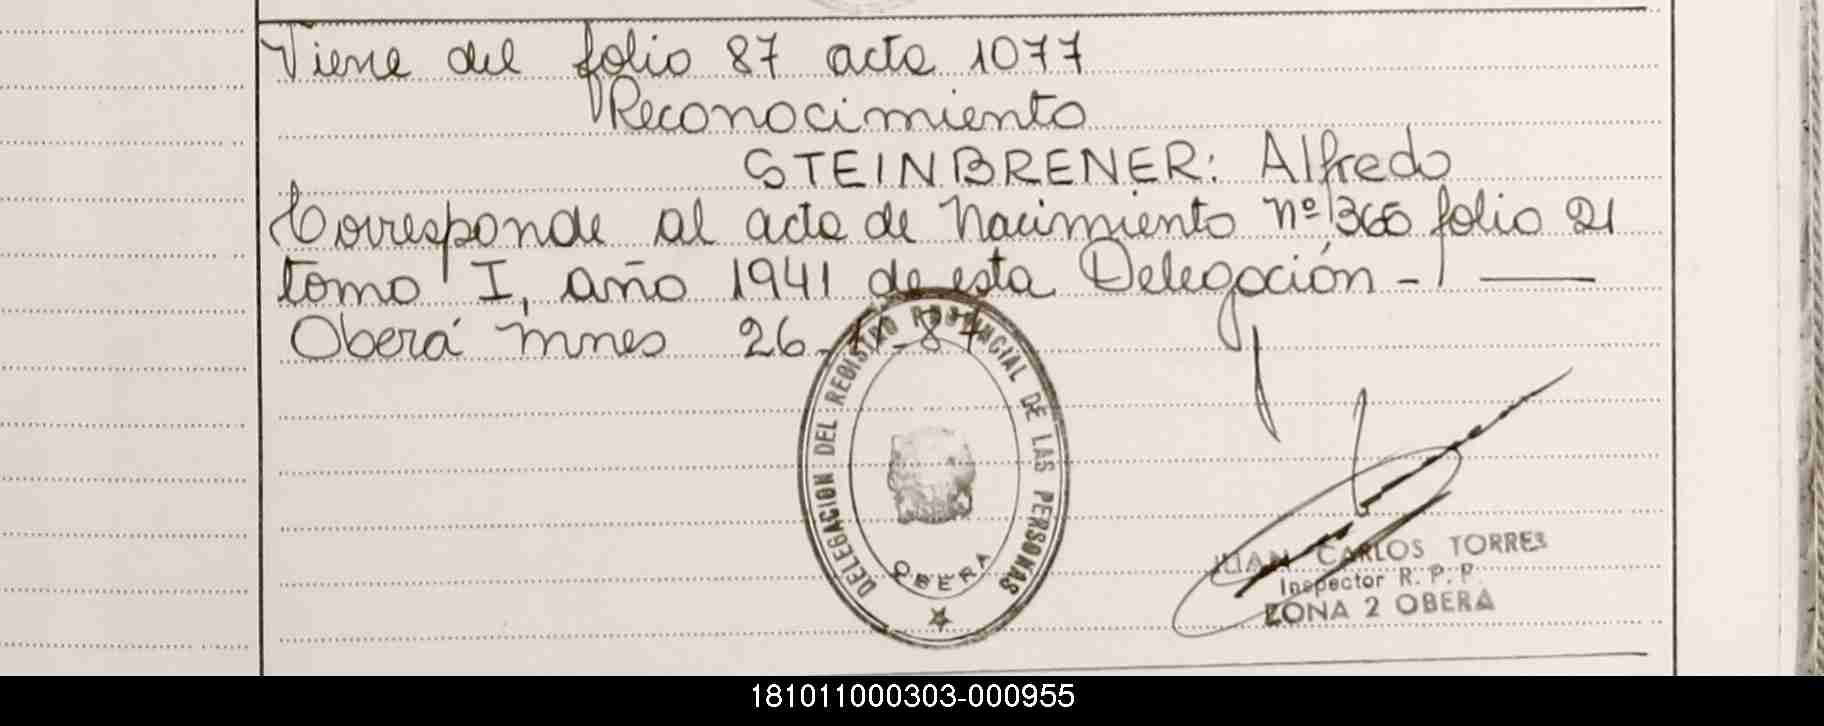 Viene del folio 87 acta 1077
Reconocimiento
STEINBRENER: Alfredo
Corresponde al acta de Nacimiento nº 366 folio 21
tomo I, año 1941 de esta Delegación - / ——
Oberá Mnes 26-11-87
DELEGACION DEL REGISTRO PROVINCIAL DE LAS PERSONAS
OBERA
JUAN CARLOS TORRES
Inspector R. P. P.
ZONA 2 OBERA
181011000303-000955